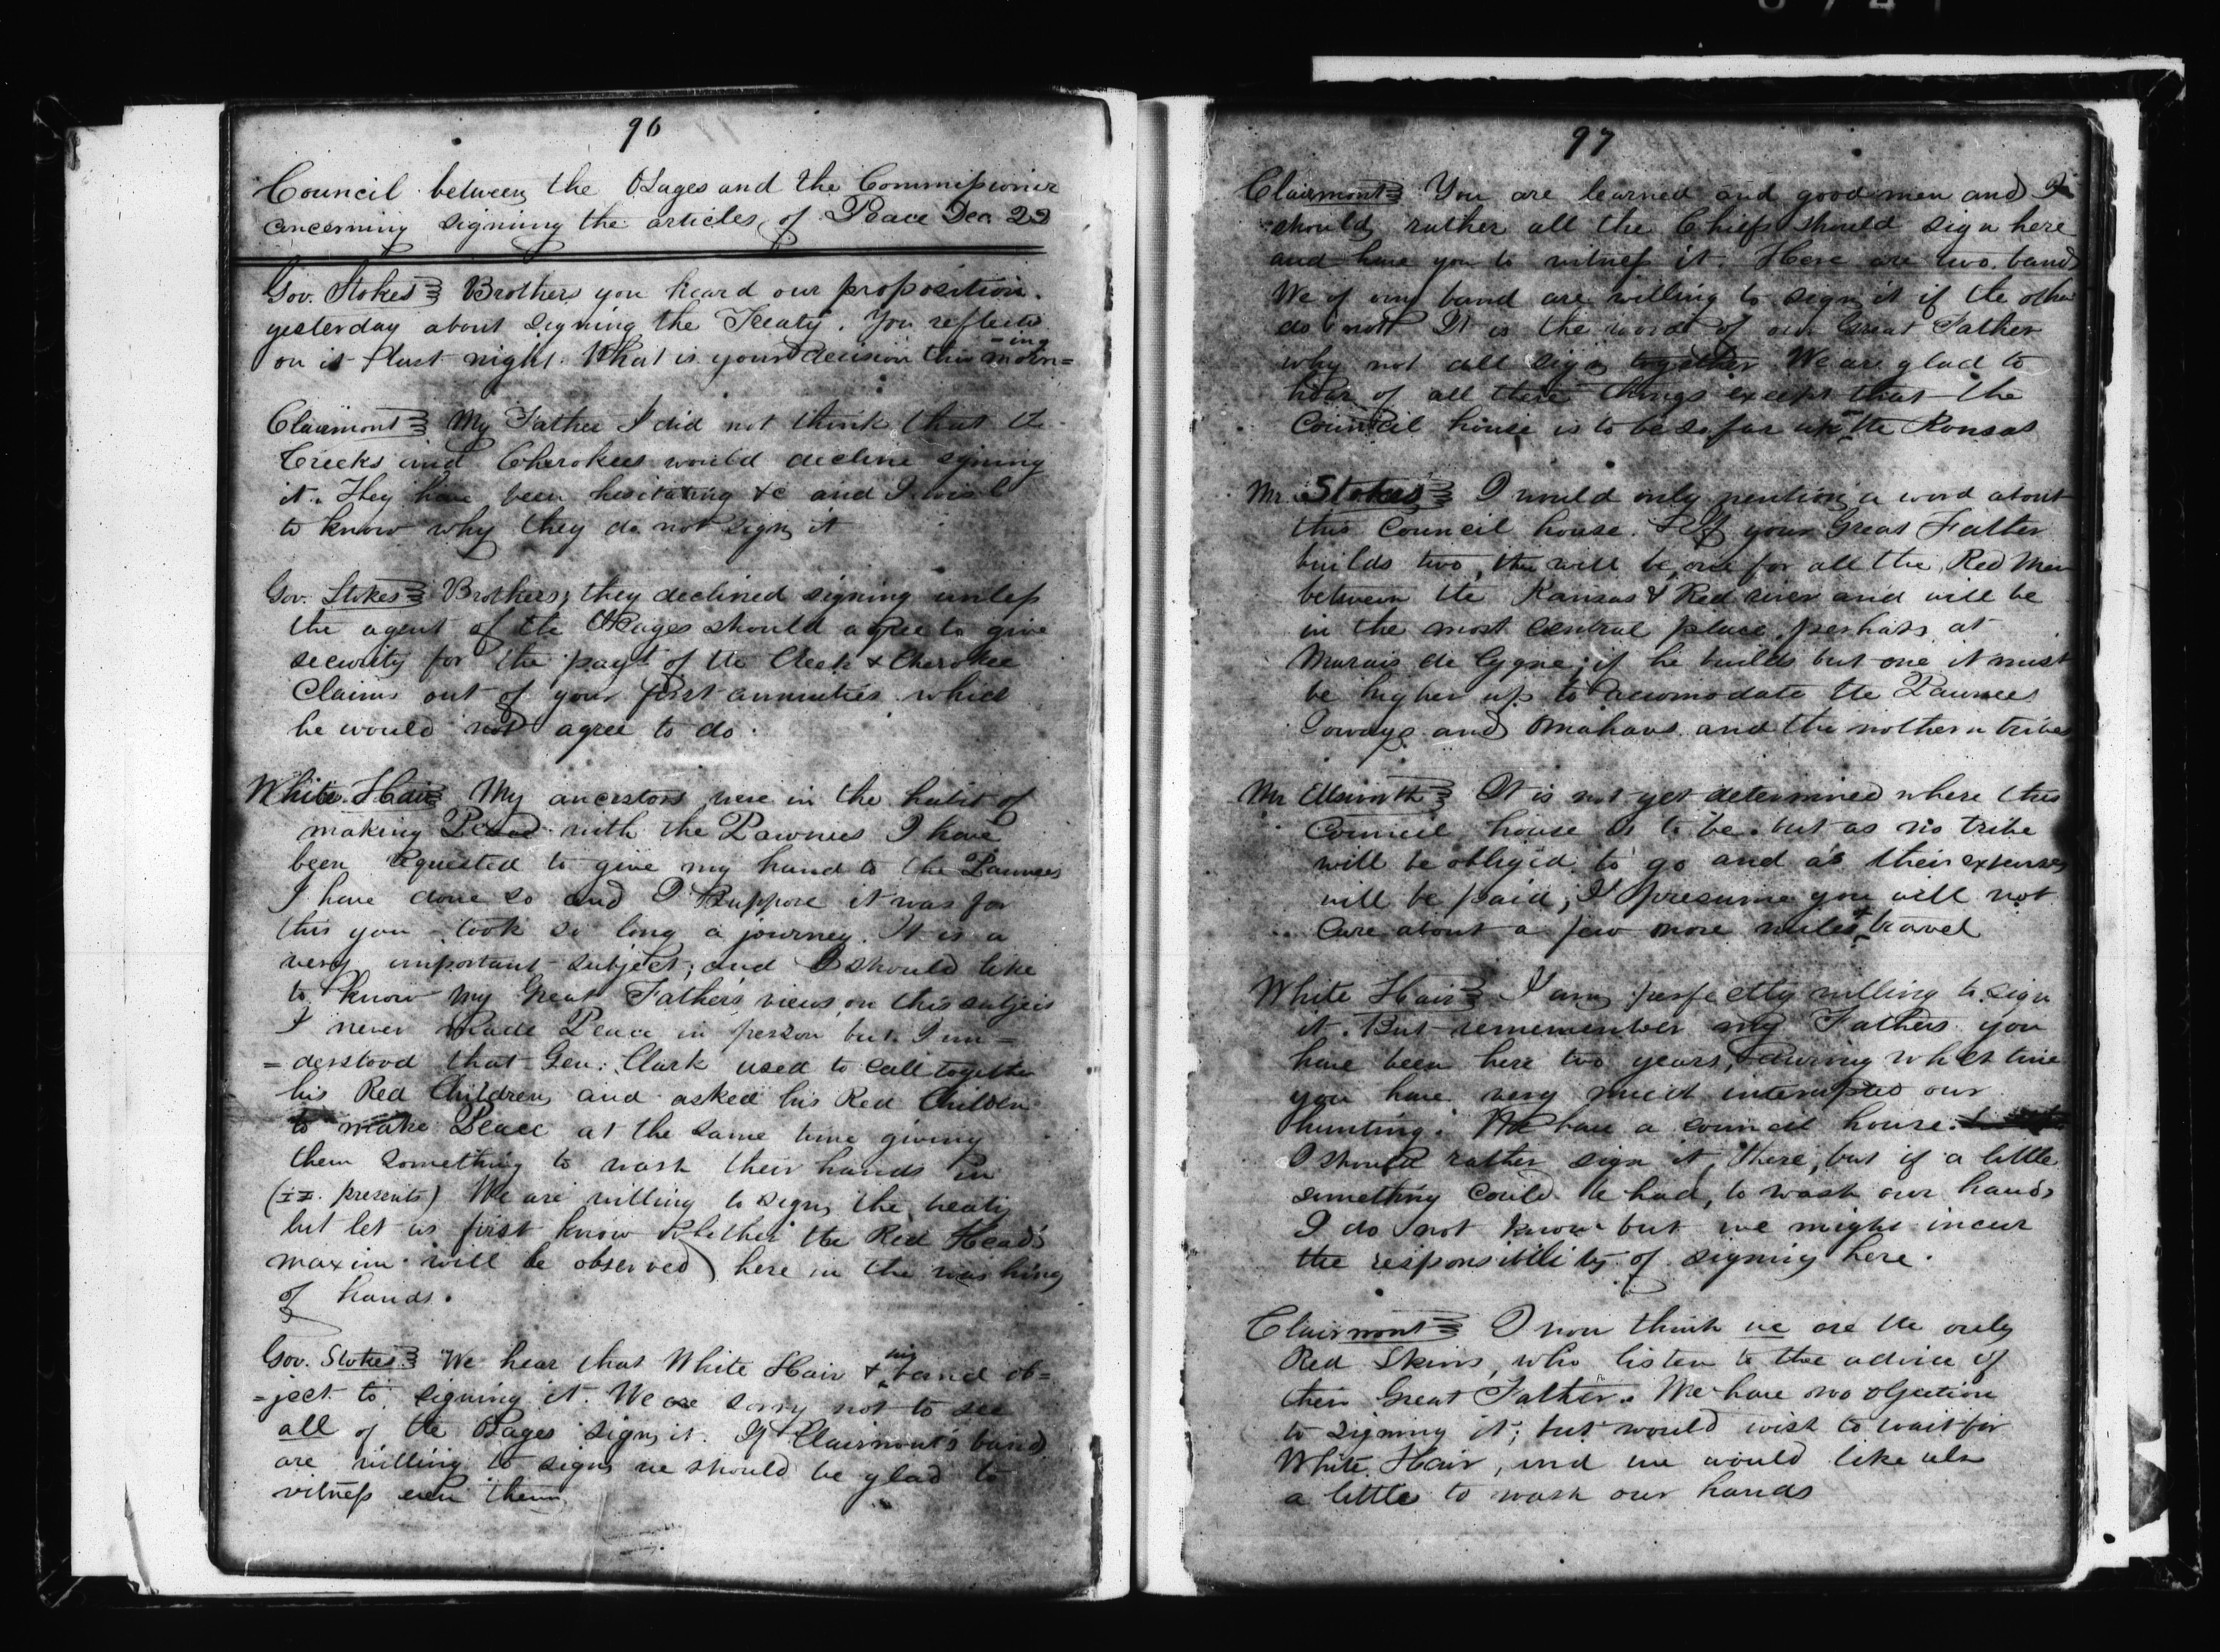 96
Council between the Osages and the Commissioner
concerning signing the articles of Peace Dec 23
Gov. Stokes Brothers you heard our proposition
yesterday about signing the Treaty. You reflected
on it last night. What is your decision this morn=
-ing
Clairmont My Father I did not think that the
Creeks and Cherokees would decline signing
it. They have been hesitating &c and I wish
to know why they do not sign it
Gov. Stokes Brothers, they declined signing unless
the agent of the Osages should agree to give
security for the payt of the Creek & Cherokee
Claims out of your first annuities which
he would not agree to do.
White Hair My ancestors were in the habit of
making Peace with the Pawnees I have
been requested to give my hand to the Pawnees
I have done so and I suppose it was for
this you took so long a journey. It is a
very important subject; and I should like
to know my Great Father's views on this subject
I never made Peace in person but I un=
=derstood that Gen. Clark used to call together
his Red Children and asked his Red Children
to make Peace at the same time giving
them something to wash their hands in
(i.e. presents) We are willing to sign the treaty
but let us first know whether the Red Head's
maxim will be observed here in the washing
of hands.
Gov. Stokes We hear that White Hair & his band ob=
=ject to signing it. We are sorry not to see
all of the Osages sign it. If Clairmont's band
are willing to sign we should be glad to
witness even them
97
Clairmont You are learned and good men and I
should rather all the Chiefs should sign here
and have you to witness it. Here are two bands
We of our band are willing to sign it if the other
do not It is the word of our Great Father
why not all sign together We are glad to
hear of all these things except that the
Council house is to be so far up on the Konsas
Mr. Stokes I would only mention a word about
this Council house. If your Great Father
builds two, there will be one for all the Red Men
between the Kansas & Red river and will be
in the most central place, perhaps at
Marais de Cygne; if he builds but one it must
be higher up to accomodate the Pawnees
Ioways and Omahaws and the nothern tribes
Mr Ellsworth It is not yet determined where this
Council house is to be. but as no tribe
will be oblig'd to go and as their expenses
will be paid; I presume you will not
care about a few more miles travel
White Hair I am perfectly willing to sign
it. But rememember my Fathers you
have been here two years, during which time
you have very much interupted our
hunting. We have a council house.
I should rather sign it there, but if a little
something could be had, to wash our hands
I do not know but we might incur
the responsibility of signing here.
Clairmont I now think we are the only
Red Skins, who listen to the advice of
their Great Father. We have no objection
to signing it; but would wish to wait for
White Hair, and we would like also
a little to wash our hands